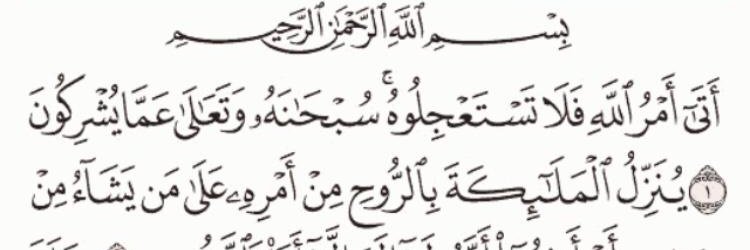 بِسْمِ ٱللَّهِ ٱلرَّحْمَٰنِ ٱلرَّحِيمِ
أَتَىٰٓ أَمْرُ ٱللَّهِ فَلَا تَسْتَعْجِلُوهُ ۚ سُبْحَٰنَهُۥ وَتَعَٰلَىٰ عَمَّا يُشْرِكُونَ
١ يُنَزِّلُ ٱلْمَلَٰٓئِكَةَ بِٱلرُّوحِ مِنْ أَمْرِهِۦ عَلَىٰ مَن يَشَآءُ مِنْ